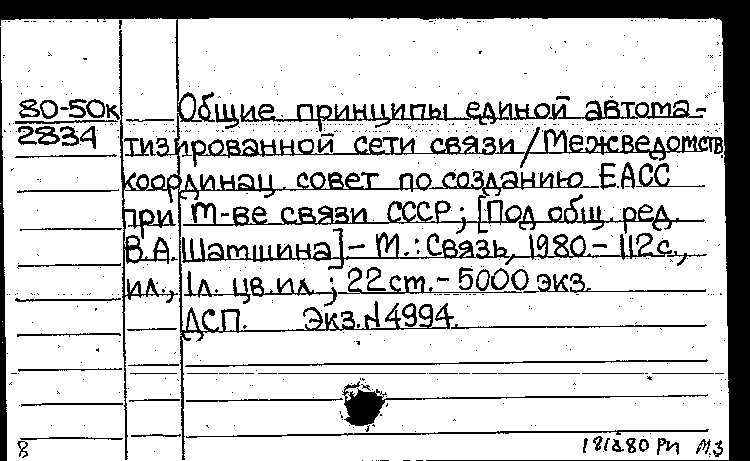 80-50к Общие принципы единой автома-
2834 тизированной сети связи / Межведомств
координац. совет по созданию ЕАСС
при М-ве связи СССР; [Под общ. ред.
В.А. Шатшина] - М.: Связь, 1980. - 112с.,
ил., 1л. цв. ил.; 22 ст. - 5000 экз.
ДСП. Экз. N 4994.
8